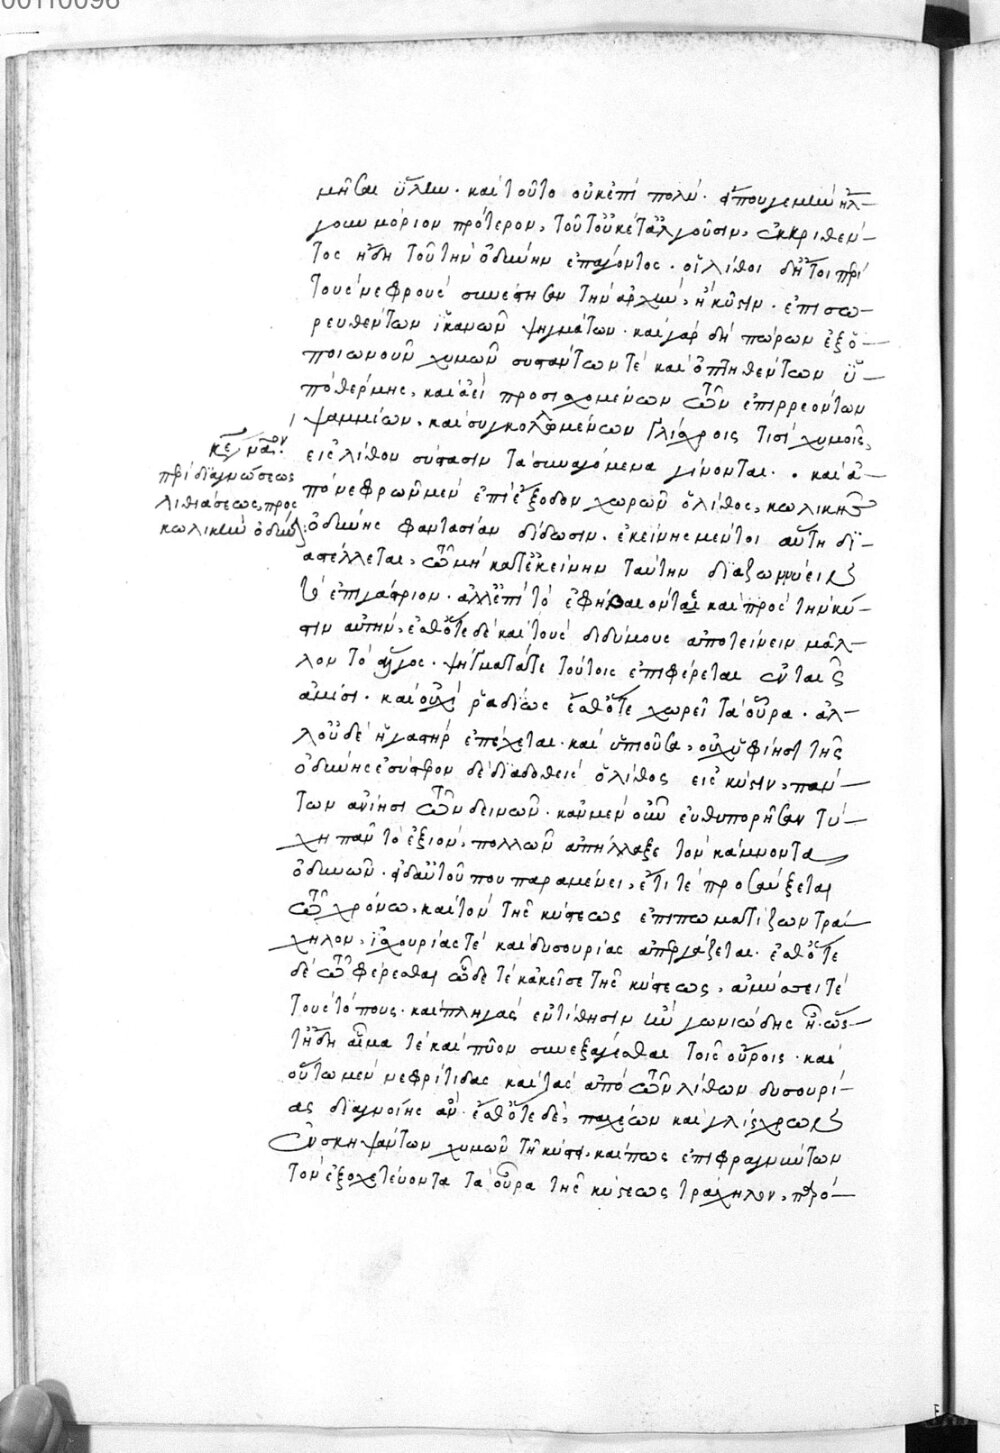 00110096
μῆσαι ὕλην. καὶ τοῦτο οὐκ ἐπὶ πολύ. ὅπου γε μὴν ἤλ-
γουν μόριον πρότερον, τοῦτ' οὐκέτ' ἀλγοῦσιν, ἐκκριθέν-
τος ἤδη τοῦ τὴν ὀδύνην ἐπάγοντος. οἱ λίθοι δήτοι περὶ
τοὺς νεφροὺς συνέστησαν τὴν ἀρχὴν, ἢ κύστιν. ἐπισω-
ρευθέντων ἱκανῶν ψηγμάτων. καὶ γὰρ δὴ πώρων ἐξ ὁ-
ποιωνοῦν χυμῶν συστάντων τὲ καὶ ὀπτηθέντων ὑ-
πὸ θέρμης, καὶ ἀεὶ προσισχομένων τῶν ἐπιρρεόντων
ψαμμίων, καὶ συγκολλωμένων γλίσχροις τισὶ χυμοῖς,
εἰς λίθου σύστασιν τὰ συναγόμενα γίνονται. καὶ ἀ-
πὸ νεφρῶν μὲν ἐπὶ ἔξοδον χωρῶν ὁ λίθος, κωλικῆς
ὀδύνης φαντασίαν δίδωσιν. ἐκείνης μέντοι αὕτη δι-
αστέλλεται, τῷ μὴ κατ' ἐκείνην ταύτην διαζωννύειν
τὸ ἐπιγάστριον. ἀλλ' ἐπὶ τὸ ἐφήβαιον τὲ καὶ πρὸς τὴν κύ-
στιν αὐτὴν, ἔσθ' ὅτε δὲ καὶ τοὺς διδύμους ἀποτείνειν μᾶλ-
λον τὸ ἄλγος. ψήγματά τε τούτοις ἐπιφέρεται ἐν ταῖς
ἀμίσι. καὶ οὐχὶ ῥᾳδίως ἔσθ' ὅτε χωρεῖ τὰ οὖρα. ἀλ-
λ' οὐδὲ ἡ γαστὴρ ἐπέχεται. καὶ ὑπιοῦσα, οὐχ ὑφίησι τῆς
ὀδύνης ἐς ὕστερον δὲ διαδοθεὶς ὁ λίθος εἰς κύστιν, πάν-
των ἀνίησι τῶν δεινῶν. κἂν μὲν οὖν εὐθυπορῆσαν τύ-
χῃ πᾶν τὸ ἐξιὸν, πολλῶν ἀπήλλαξε τὸν κάμνοντα
ὀδυνῶν. εἰ δ' αὐτοῦ που παραμένει, ἔτι τὲ προσαύξεται
τῷ χρόνῳ, καὶ τὸν τῆς κύστεως ἐπιπωματίζων τρά-
χηλον, ἰσχουρίας τὲ καὶ δυσουρίας ἀπεργάζεται. ἔσθ' ὅτε
δὲ τῷ φέρεσθαι ὧδε τὲ κἀκεῖσε τῆς κύστεως, ἀμύσσει τὲ
τοὺς τόπους. καὶ πληγὰς ἐντίθησιν ἂν γωνιώδης ᾖ. ὥς-
τ' ἤδη αἷμα τὲ καὶ πῦον συνεξάγεσθαι τοῖς οὔροις. καὶ
οὕτω μὲν νεφρίτιδας καὶ τὰς ἀπὸ τῶν λίθων δυσουρί-
ας διαγνοίης ἄν. ἔσθ' ὅτε δὲ, παχέων καὶ γλίσχρων
ἐνσκηψάντων χυμῶν τῇ κύστει. καί πως ἐπιφραγνύντων
τὸν ἐξοχετεύοντα τὰ οὖρα τῆς κύστεως τράχηλον, πρό-
περὶ διαγνώσεως
λιθιάσεως, πρὸς
κωλικὴν ὀδύνην: